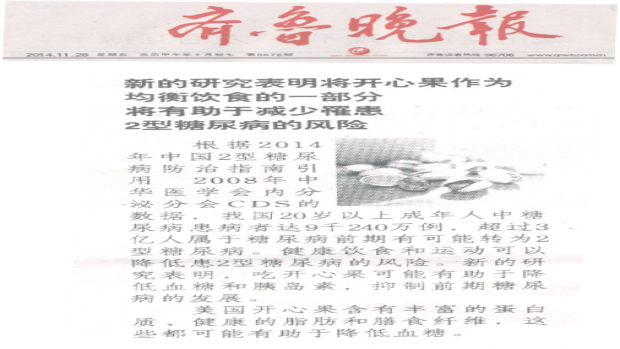 齐鲁晚报
2014.11.28 星期五
新的研究表明将开心果作为
均衡饮食的一部分
将有助于减少罹患
2型糖尿病的风险
根据2014
年中国2型糖尿
病防治指南引
用 2008年中
华医学会内分
泌分会CDS的
数据,我国20岁以上成年人中糖
尿病患病者达9千240万例,超过3
亿人属于糖尿病前期有可能转为2
型糖尿病。健康饮食和运动可以
降低患2型糖尿病的风险。新的研
究表明,吃开心果可能有助于降
低血糖和胰岛素,抑制前期糖尿
病的发展。
美国开心果含有丰富的蛋白
质、健康的脂肪和膳食纤维,这
些都可能有助于降低血糖。